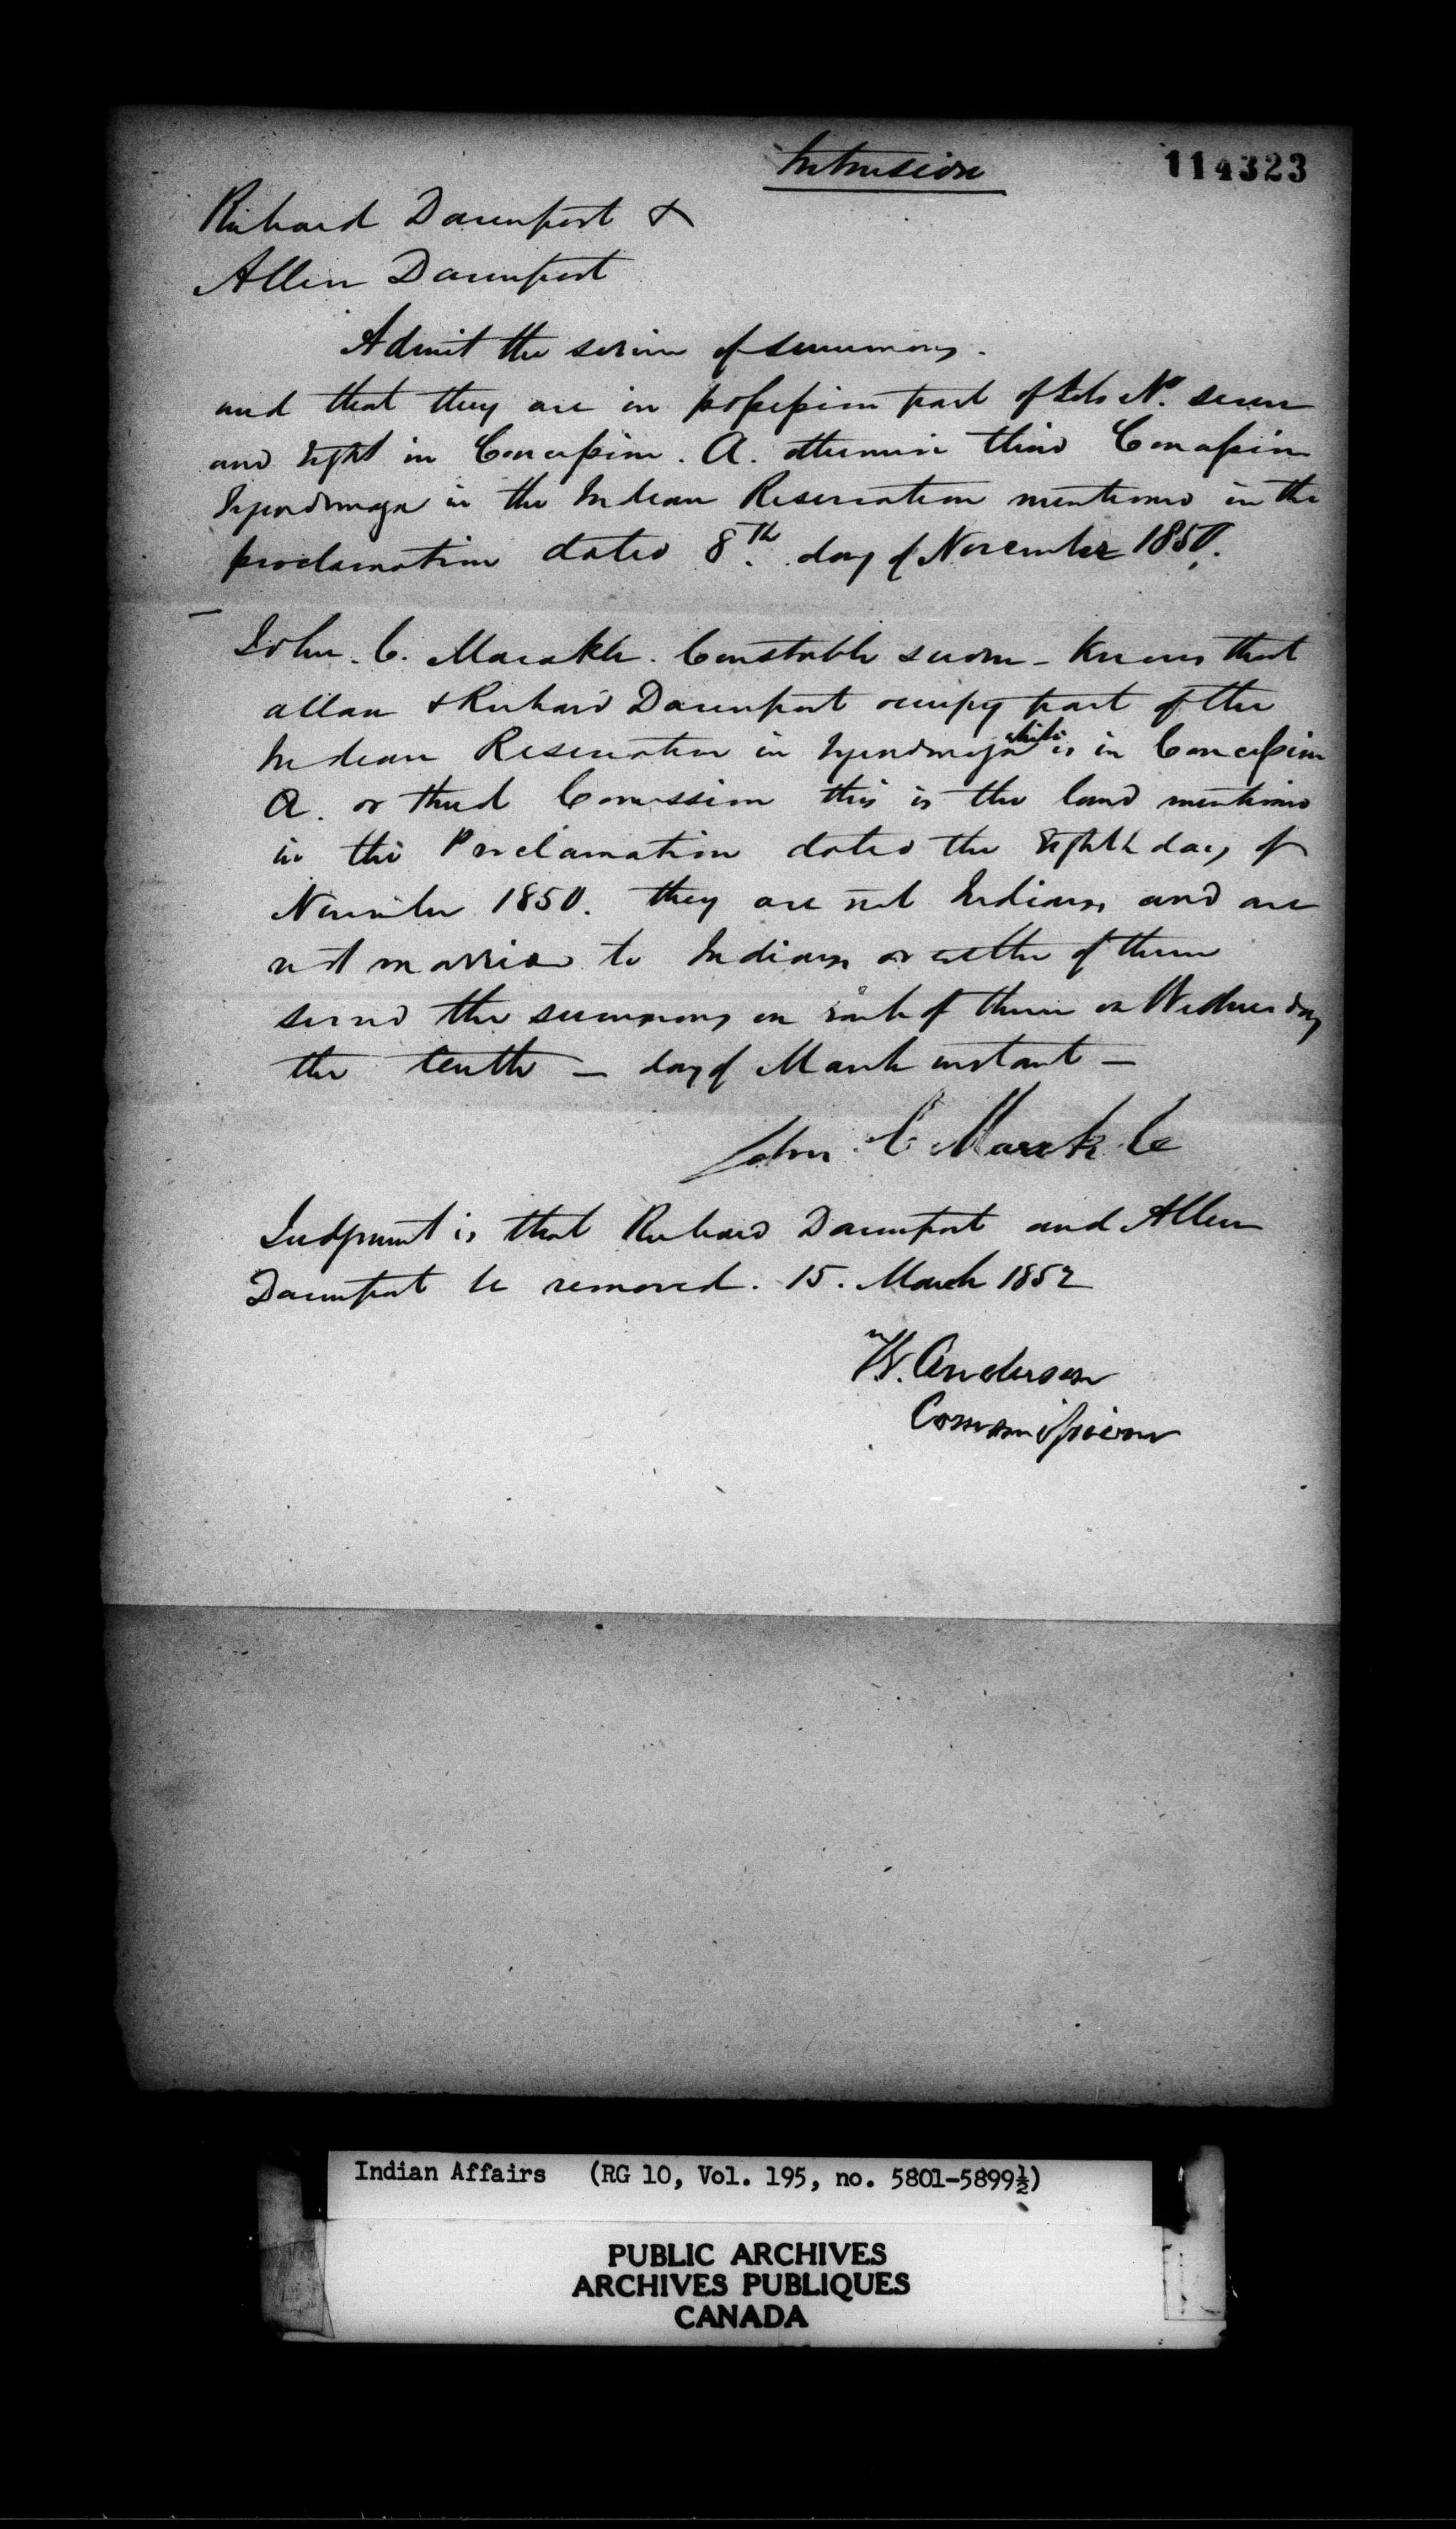 Intrusion
114323
Richard Davenport &
Allen Davenport
Admit the service of summons.
and that they are in possession part of Lots No. seven
and Eight in Concession. A. otherwise third Concession
Tyendinaga in the Indian Reservation mentioned in the
proclamation dated 8th. day of November 1850.
John. C. Marakle. Constable sworn - Knows that
allan & Richard Davenport occupy part of the
Indian Reservation in Tyendinaga which is in Concession
A. or third Concession this is the land mentioned
in the Proclamation dated the Eighth day of
November 1850. they are not Indians and are
not married to Indians or either of them
served the summons on each of them on Wednesday
the tenth - day of March instant -
John C Marakle
Judgment is that Richard Davenport and Allen
Davenport be removed. 15. March 1852
W. Anderson
Commissioner
Indian Affairs (RG 10, Vol. 195, no. 5801-5899½)
PUBLIC ARCHIVES
ARCHIVES PUBLIQUES
CANADA